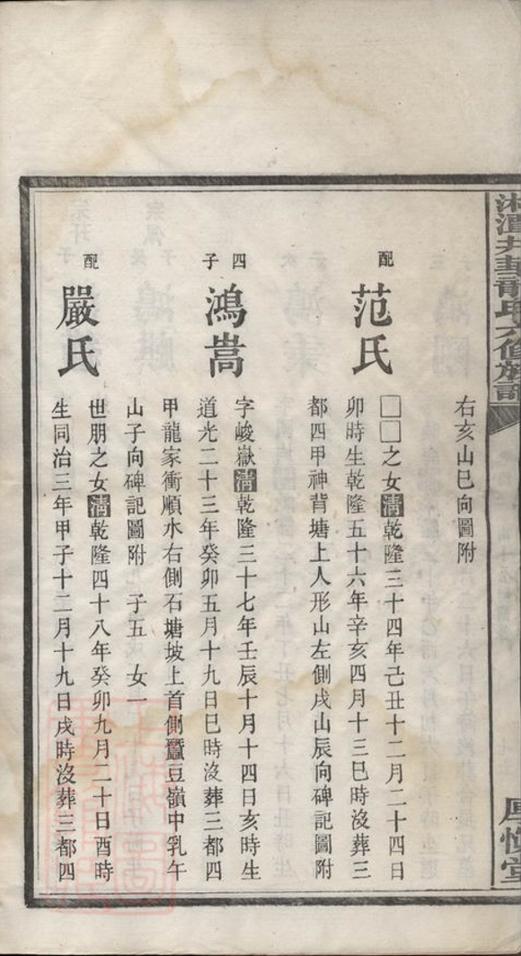 湘潭井華龍氏六修族譜
厚慎堂
右亥山巳向圖附
配
范氏
□□之女清乾隆三十四年己丑十二月二十四日
卯時生乾隆五十六年辛亥四月十三巳時沒葬三
都四甲神背塘上人形山左側戌山辰向碑記圖附
四子
鴻嵩
字峻嶽清乾隆三十七年壬辰十月十四日亥時生
道光二十三年癸卯五月十九日巳時沒葬三都四
甲龍家衝順水右側石塘坡上首側蠶豆嶺中乳午
山子向碑記圖附 子五 女一
配
嚴氏
世朋之女清乾隆四十八年癸卯九月二十日酉時
生同治三年甲子十二月十九日戌時沒葬三都四